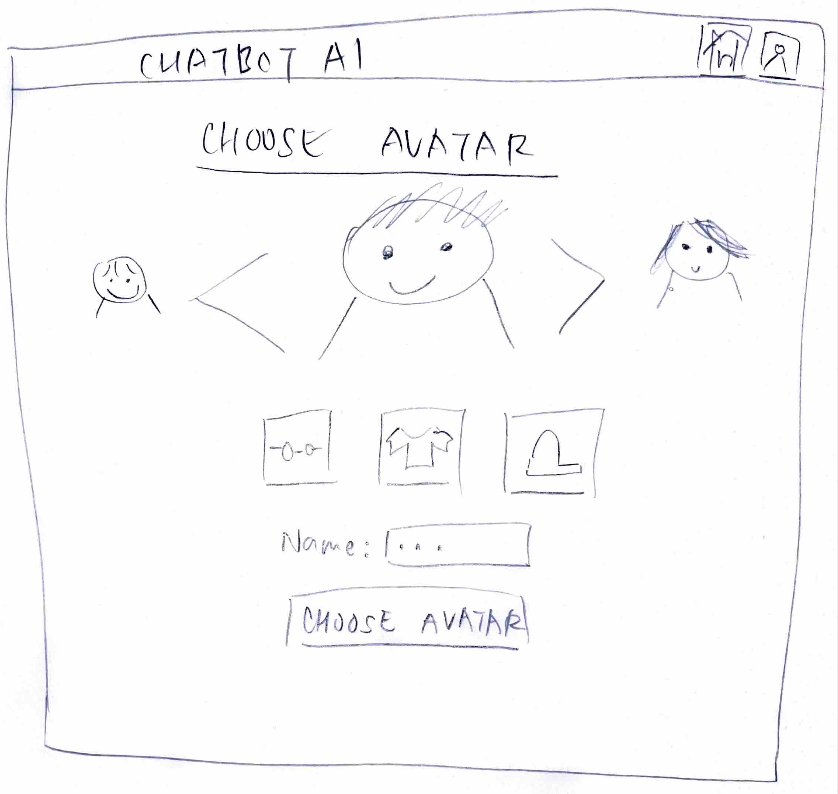 CHATBOT AI
CHOOSE AVATAR
Name: ...
CHOOSE AVATAR